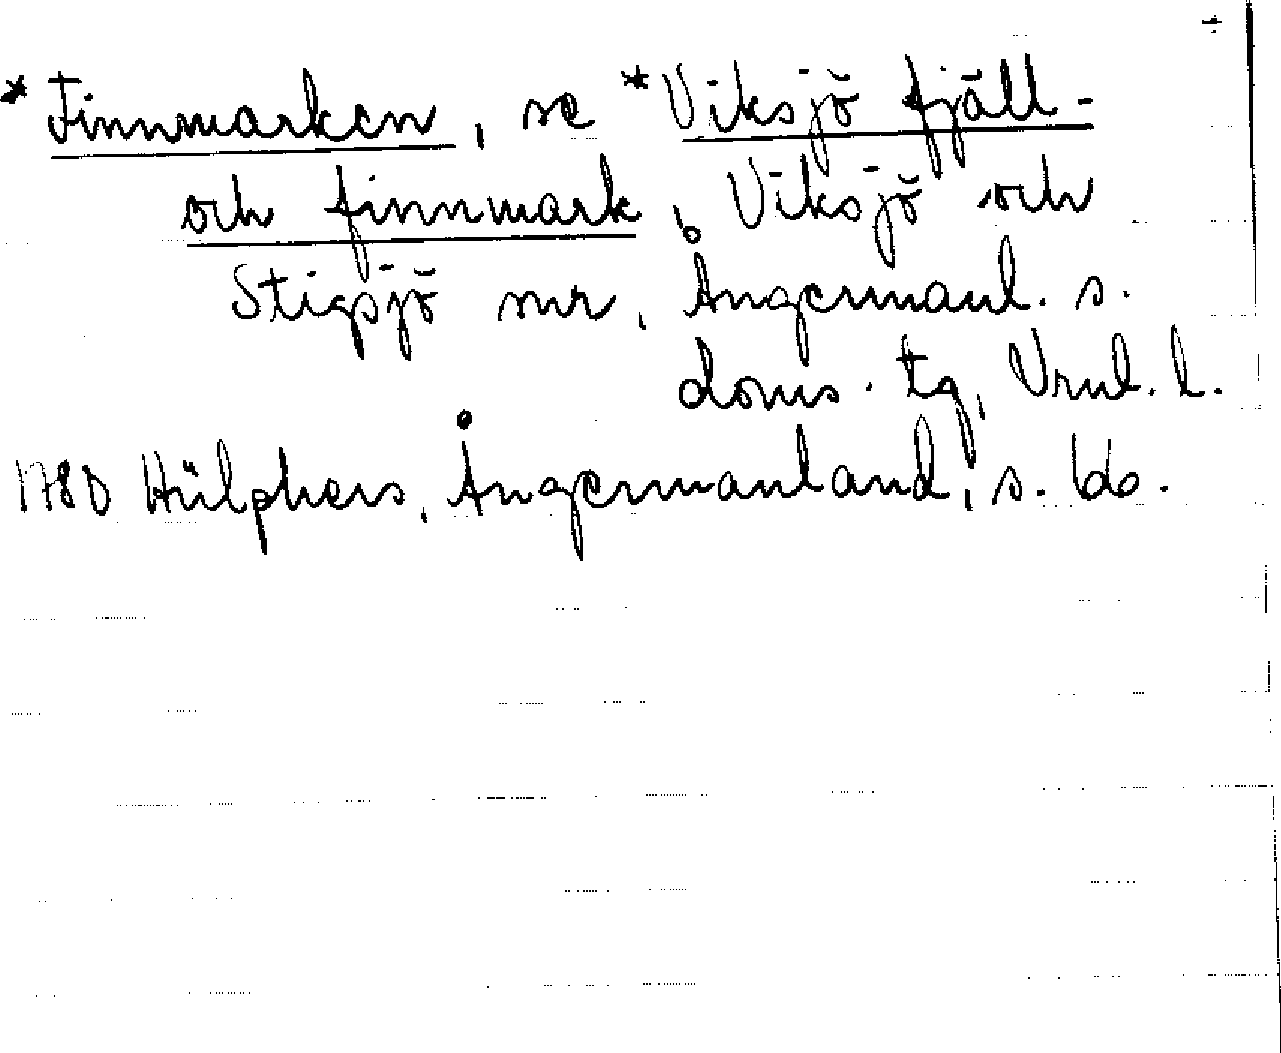 * Finnmarken, se * Viksjö fjäll-
och finnmark, Viksjö och
Stigsjö snr, Ångermanl. s.
doms. tg, Vrnl. l.
1780 Hülphers, Ångermanland, s. 66.